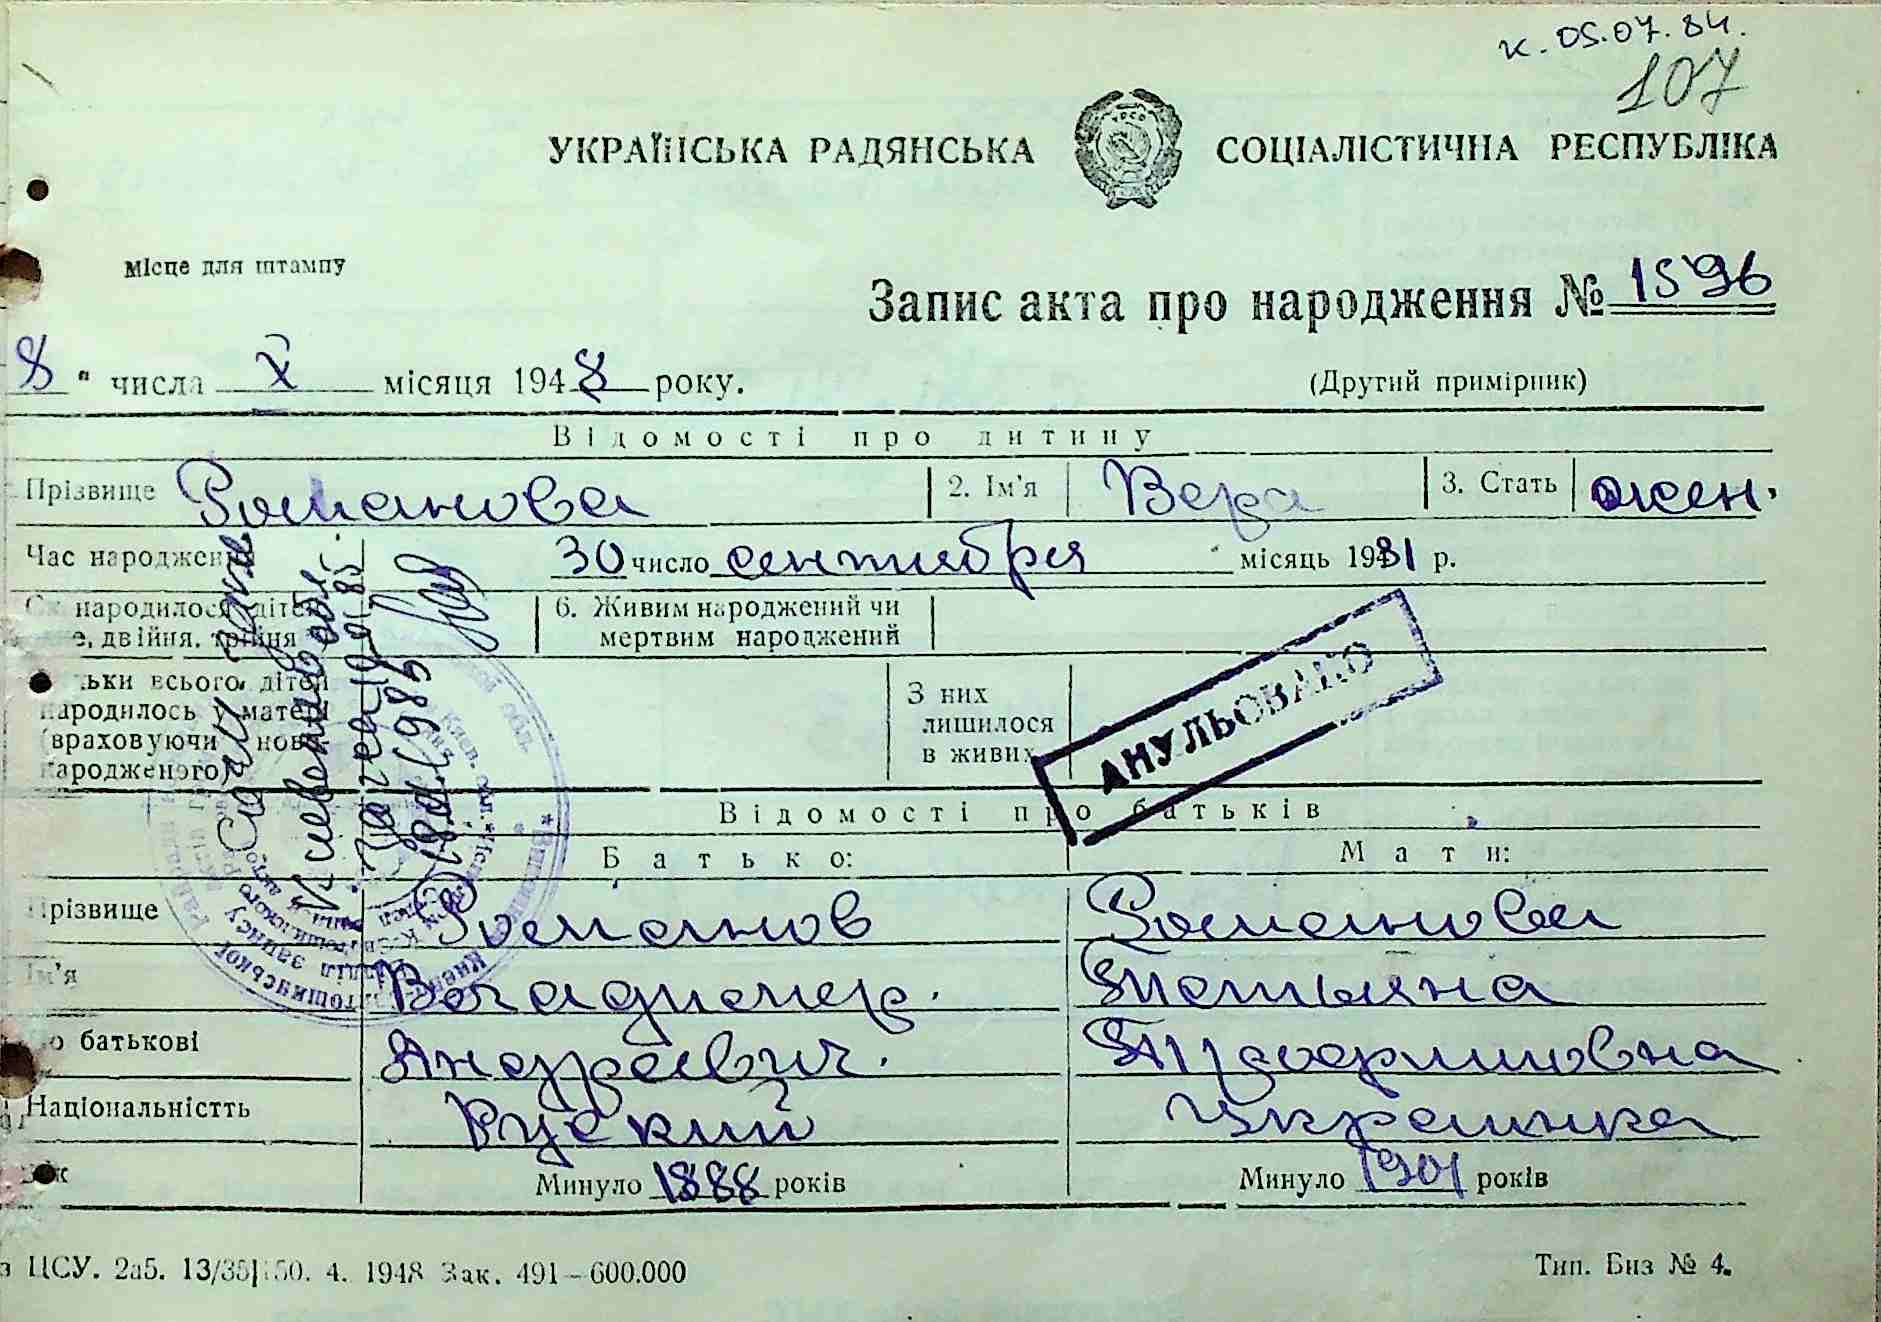 к. 05.07.84.
107
УКРАЇНСЬКА РАДЯНСЬКА СОЦІАЛІСТИЧНА РЕСПУБЛІКА
Місце для штампу
Запис акта про народження № 1596
8 " числа X місяця 1948 року. (Другий примірник)
Відомості про дитину
Прізвище Романова 2. Ім'я Вера 3. Стать жен.
Час народження 30 число сентября місяць 1931 р.
народилося дітей 6. Живим народжений чи
двійня, трійня мертвим народжений
всього дітей З них
народилось у матері лишилося
(враховуючи ново- в живих
народженого)
АНУЛЬОВАНО
Відомості про батьків
Батько: Мати:
Прізвище Романов Романова
Ім'я Владимер. Татьяна
По батькові Андреевич. Трофимовна
Національністть Руский Украинка
Вік Минуло 1888 років Минуло 1901 років
ЦСУ. 2а5. 13/35 50. 4. 1948 Зак. 491—600.000 Тип. Биз № 4.